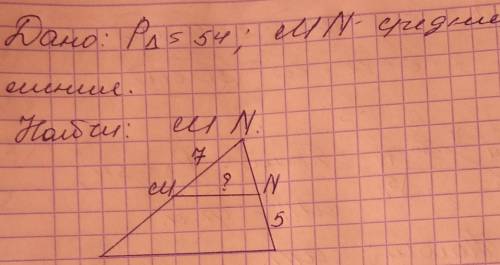 Дано: P△ = 54; MN - средняя
линия.
Найти: MN.
7
M ? N
5